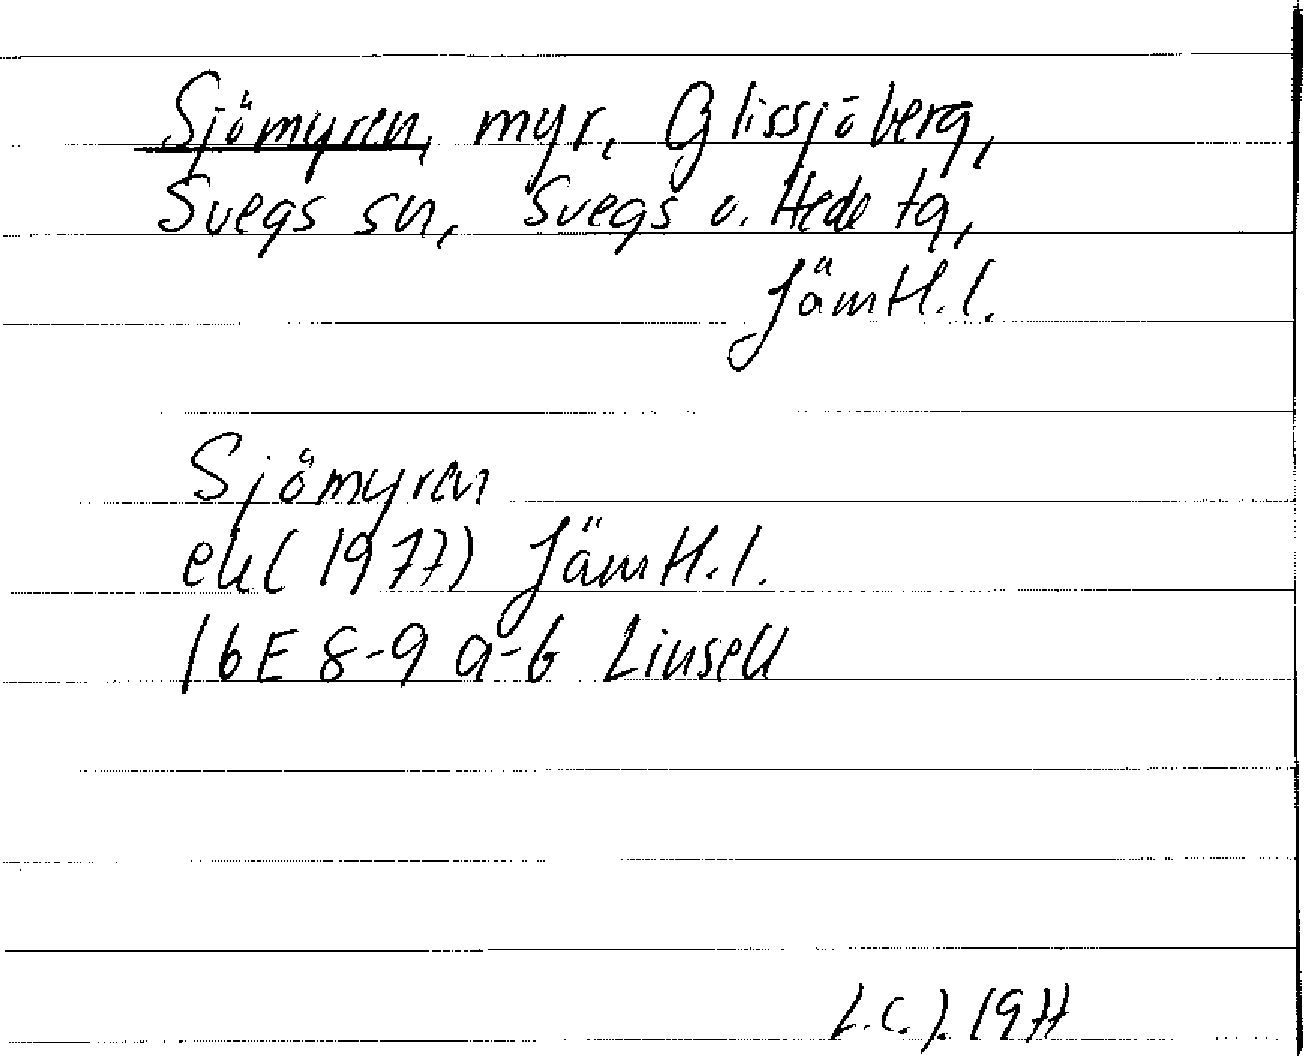 Sjömyren, myr, Glissjöberg,
Svegs sn, Svegs o. Hede tg,
Jämtl. l.
Sjömyren
ek (1977) Jämtl. l.
16E 8-9 a-b Linsell
L.C.J. 1977